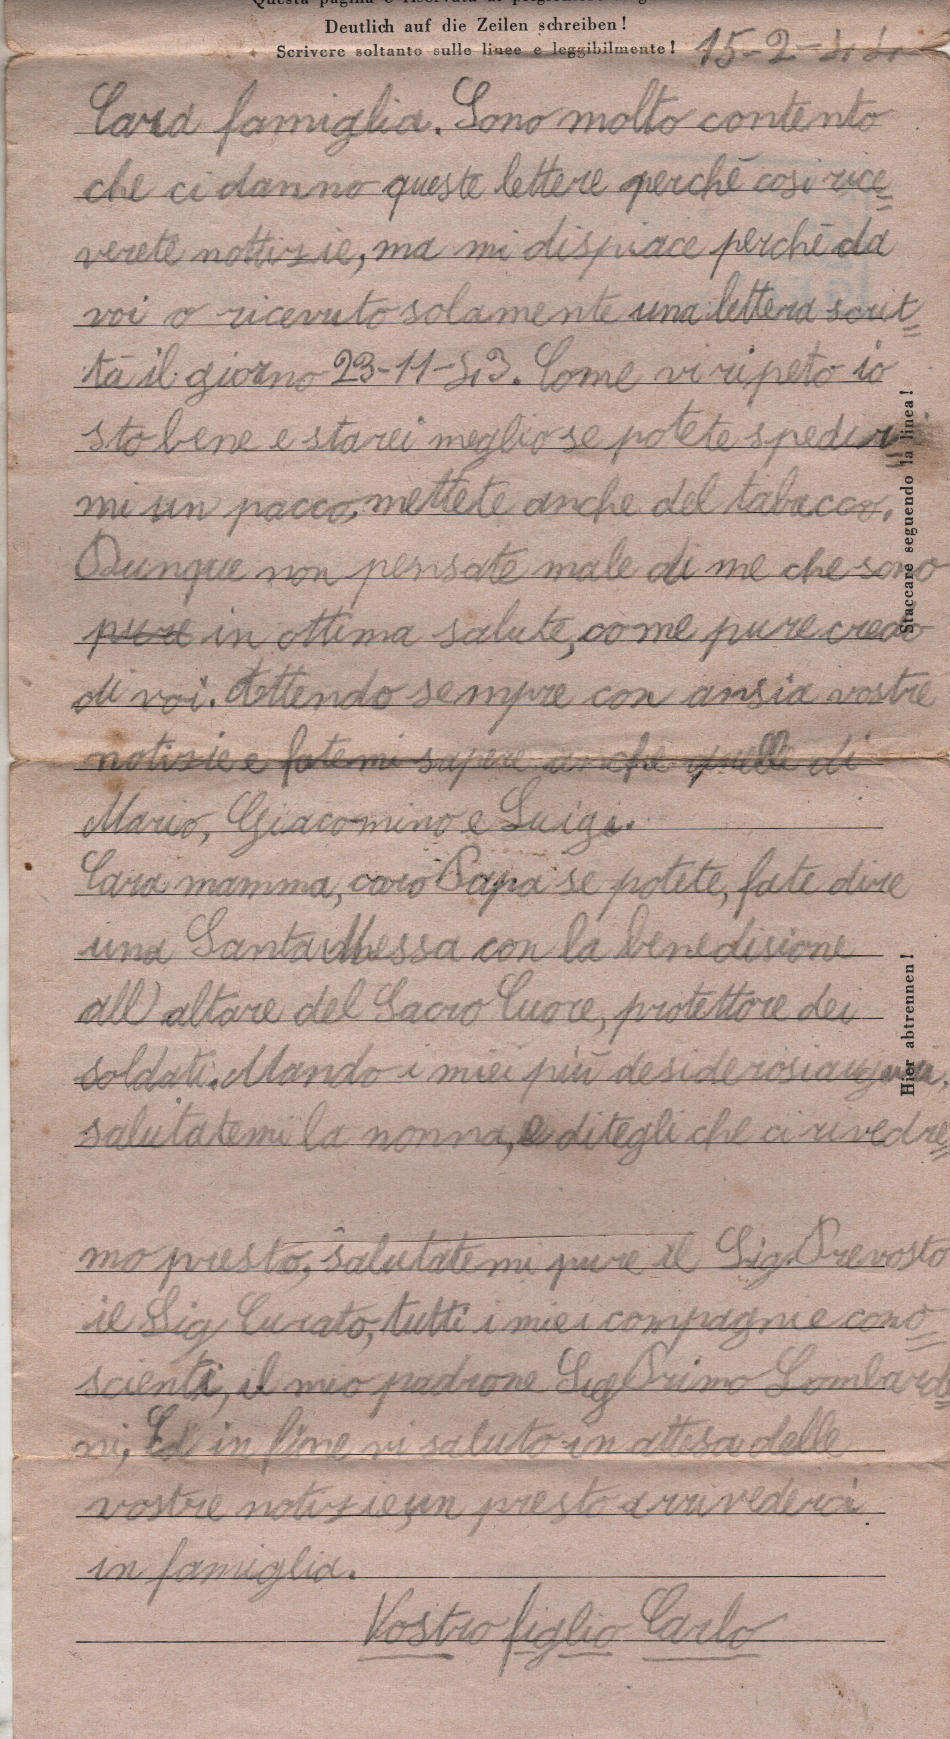 Questa pagina è riservata al prigioniero
Deutlich auf die Zeilen schreiben!
Scrivere soltanto sulle linee e leggibilmente!
15-2-44
Cara famiglia. Sono molto contento
che ci danno queste lettere perchè cosi rice
verete nottizie, ma mi dispiace perchè da
voi o ricevuto solamente una lettera scrit
ta il giorno 23-11-43. Come vi ripeto io
sto bene e starei meglio se potete spedir
mi un pacco, mettete anche del tabacco.
Dunque non pensate male di me che sono
pure in ottima salute, come pure credo
di voi. Attendo sempre con ansia vostre
notizie e fatemi sapere anche quelle di
Mario, Giacomino e Luigi.
Cara mamma, caro Papa se potete, fate dire
una Santa Messa con la benedisione
all' altare del Sacro Cuore, protettore dei
soldati. Mando i miei più desiderosi auguri,
salutatemi la nonna, e ditegli che ci rivedre
mo presto, salutatemi pure il Sig. Prevosto
il Sig Curato, tutti i miei compagni e cono
scienti, il mio padrone Sig Primo Lombard
ni, Ed in fine vi saluto in attesa delle
vostre notizie, un presto arrivederci
in famiglia.
Vostro figlio Carlo
Staccare seguendo la linea!
Hier abtrennen!